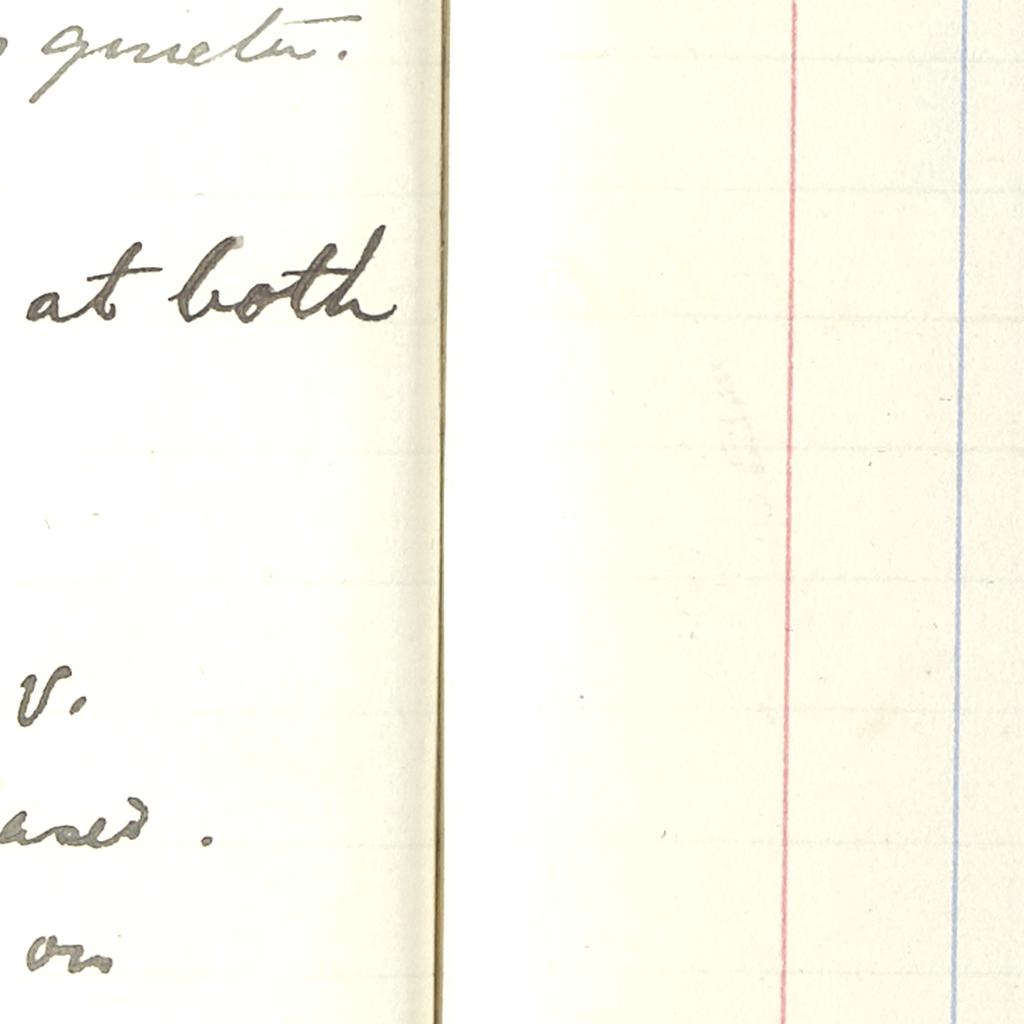 quieter.
at both
v.
on